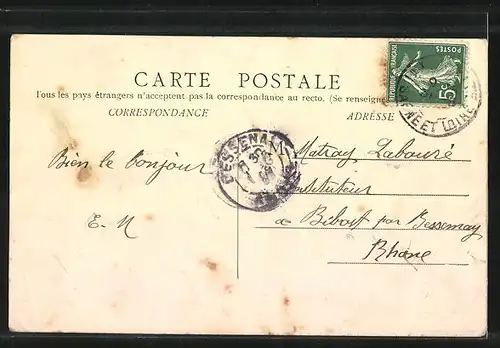 CARTE POSTALE
Tous les pays étrangers n'acceptent pas la correspondance au recto. (Se renseigne
CORRESPONDANCE
ADRESSE
POSTES
5c
SAÔNE ET LOIRE
BESSENAY
Bien le bonjour
E. N
M Matray Labouré
Instituteur
a Bibost par Bessenay
Rhône